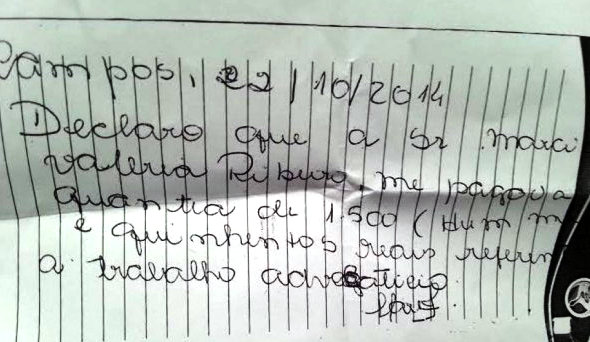 Campos, 22/10/2014
Declaro que a Sr marci
Valeria Ribeiro, me pagou a
quantia de 1.500 (Hum m
e quinhentos reais referen
a trabalho advocaticio